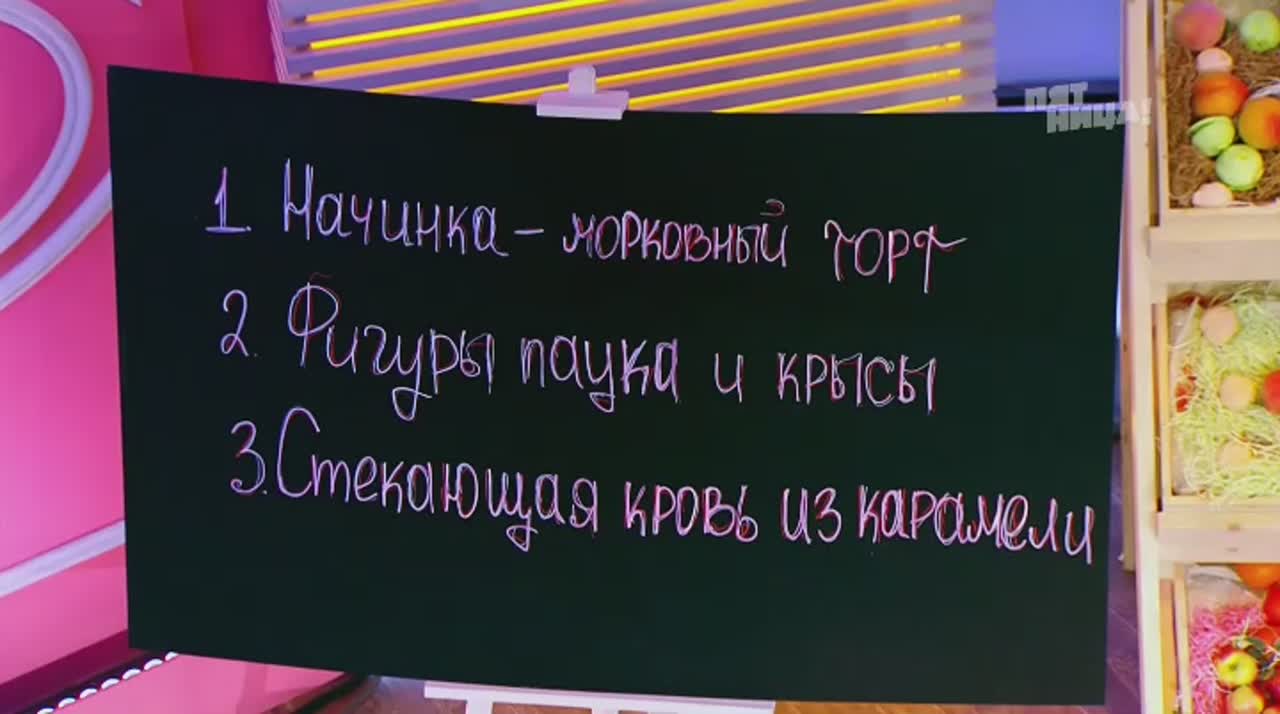 ПЯТНИЦА!
1. Начинка - морковный торт
2. Фигуры паука и крысы
3. Стекающая кровь из карамели